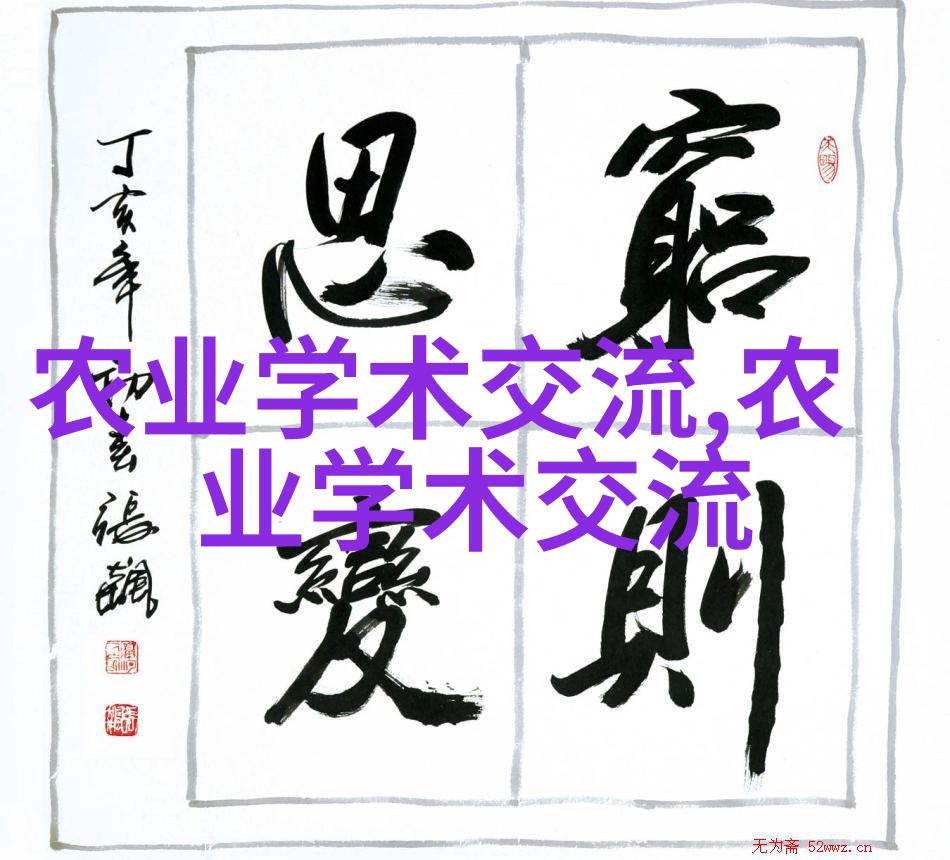 窮則
思變
丁亥年初春張飆
农业学术交流,农
业学术交流
无为斋 52wwz.cn